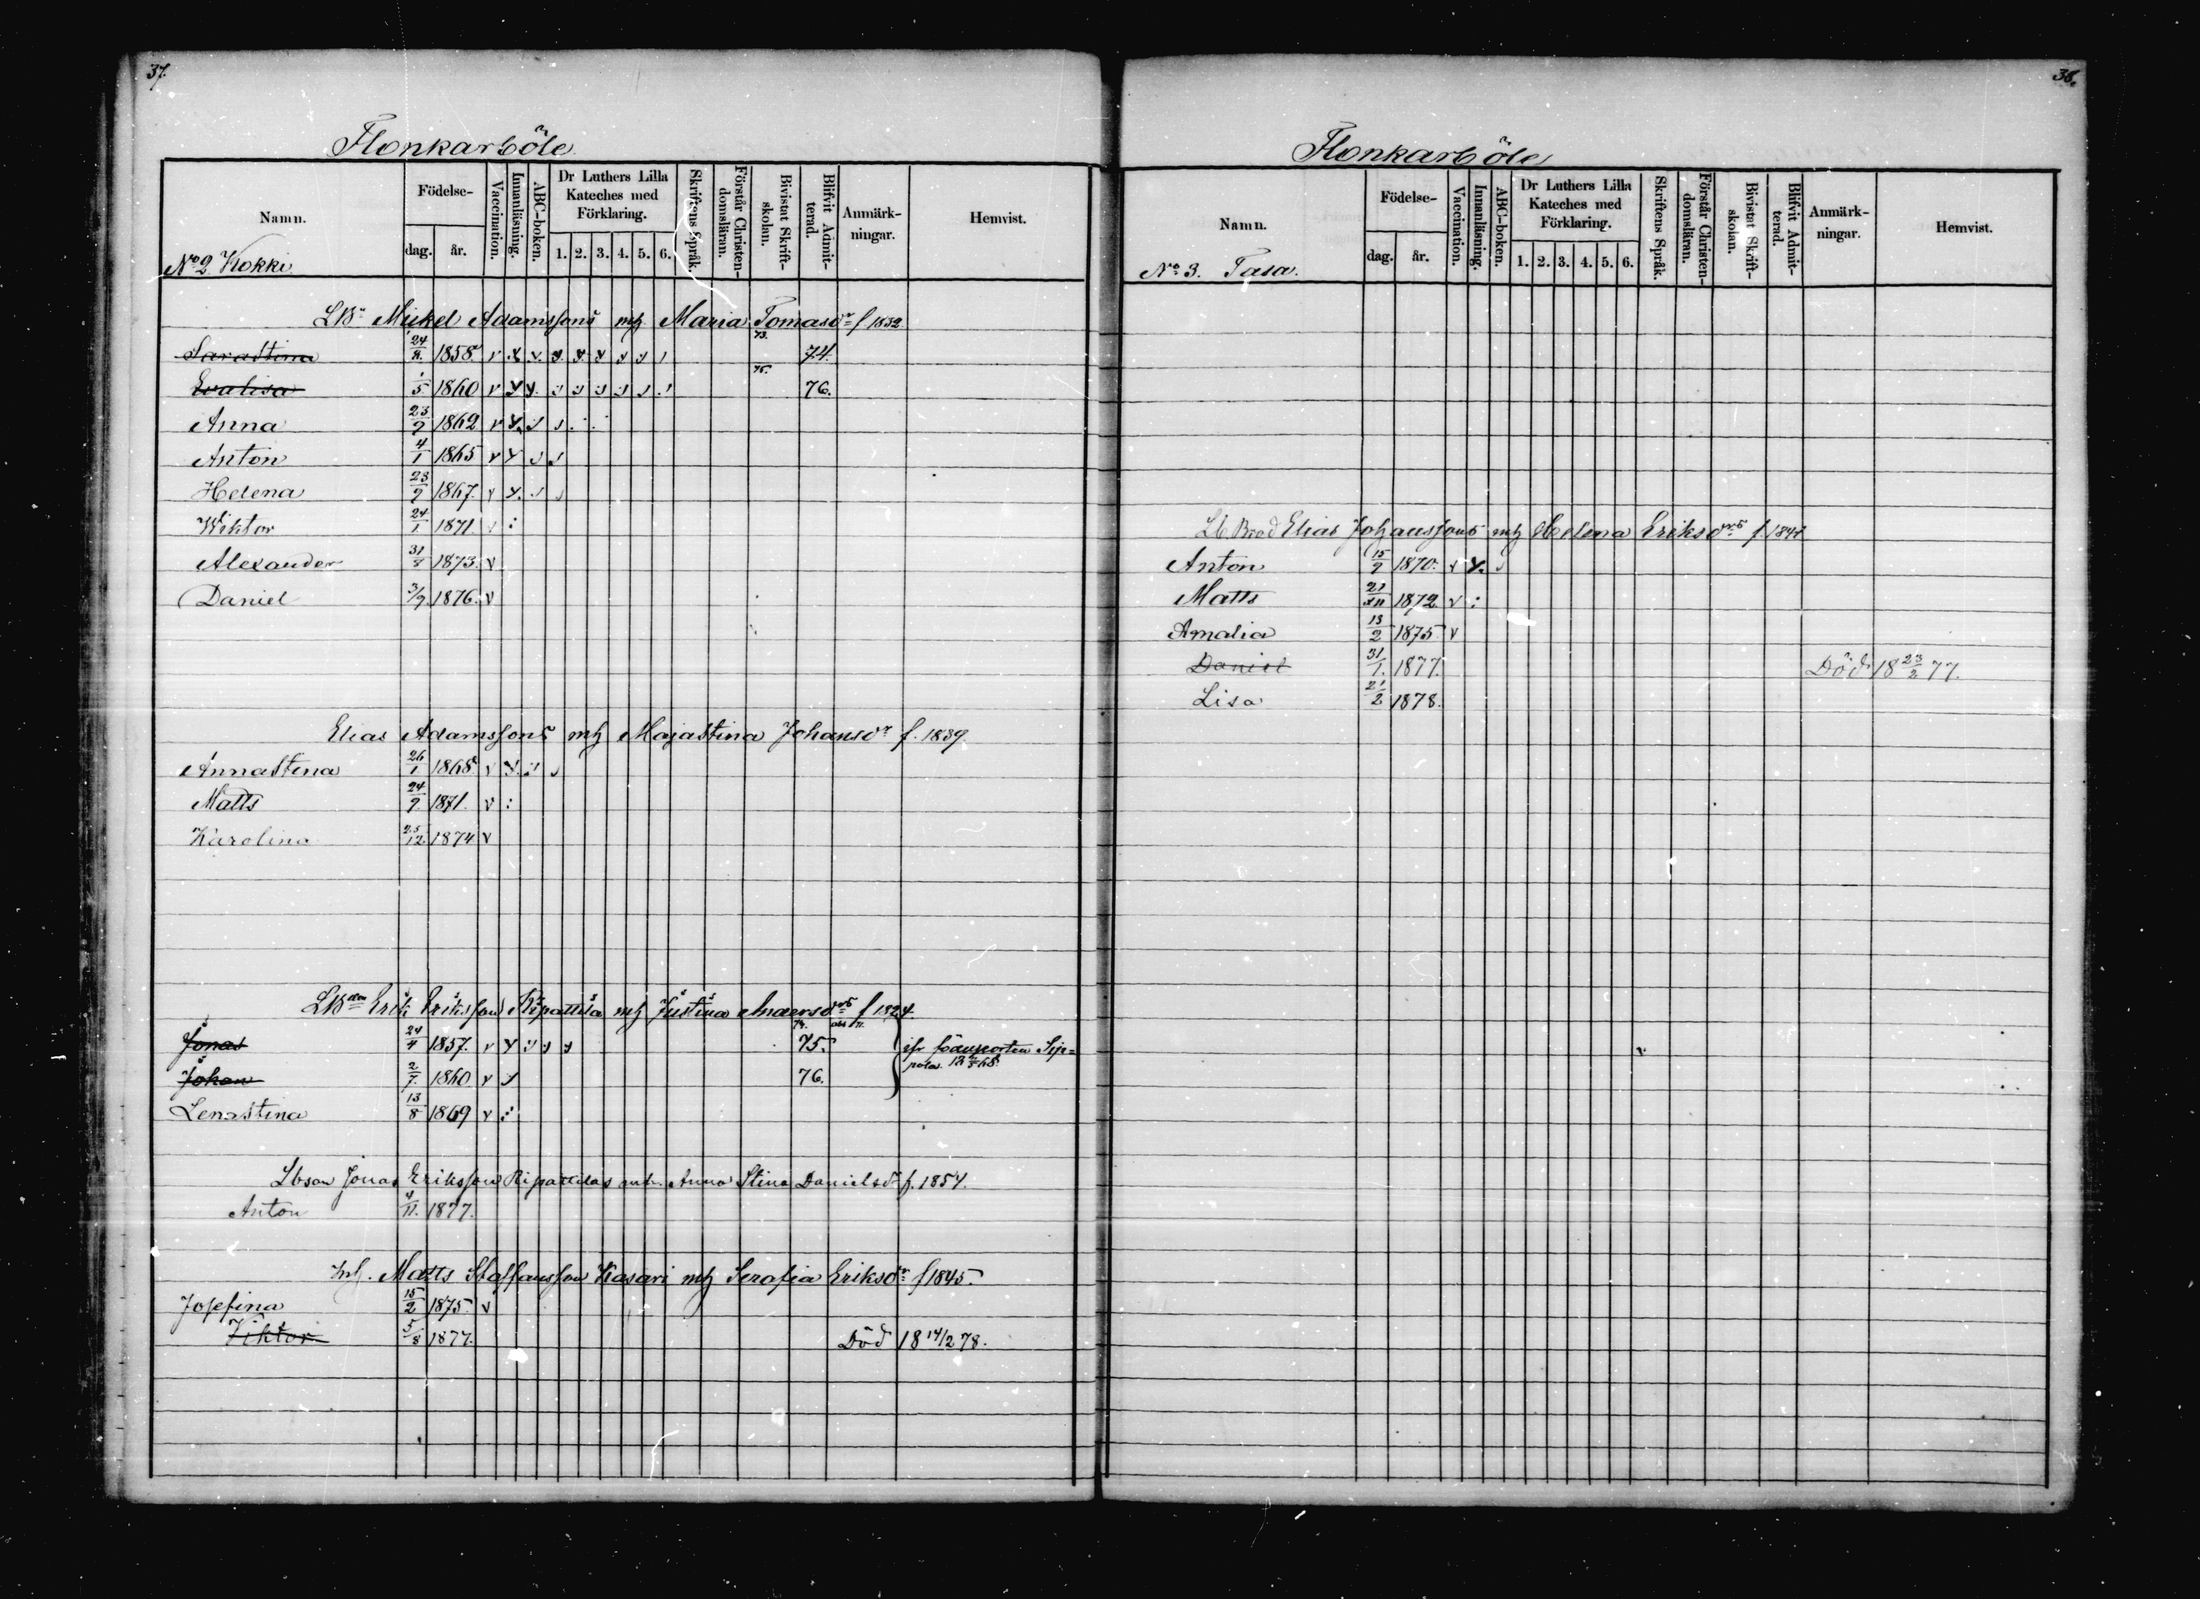 37.
Flonkarböle
Namn. Födelse- dag. år. Vaccination. Innanläsning. ABC-boken. Dr Luthers Lilla Kateches med Förklaring. 1. 2. 3. 4. 5. 6. Skriftens Språk. Förstår Christen-domsläran. Bivistat Skrift-skolan. Blifvit Admit-terad. Anmärk-ningar. Hemvist.
No 2 Kokki
Mickel Adamssons mh Maria Tomasdr f 1832
Sarastina 24/8. 1858 73. 74.
Evalisa 1/5 1860 75. 76.
Anna 23/9 1862
Anton 4/1 1865
Helena 23/9 1867.
Wiktor 24/1 1871.
Alexander 31/8 1873.
Daniel 3/9. 1876.
Elias Adamssons mh Majastina Johansdr f. 1839
Annastina 26/1 1868
Matts 24/9 1871.
Karolina 25/12 1874
Erik Eriksson Ripattila mh Justina Andersdr f 1824.
Jonas 24/4 1857. 75.
Johan 2/7. 1860 76.
Lenastina 13/8 1869
Lbson Jonas Eriksson Ripattilas mh. Anna Stina Danielsdr f. 1854.
Anton 4/11. 1877.
Inh. Matts Staffansson Kasari mh Serafia Eriksdr f 1845.
Josefina 15/2 1875.
Viktor 5/8 1877. Död 18 14/2 78.
38.
Flonkarböle
Namn. Födelse- dag. år. Vaccination. Innanläsning. ABC-boken. Dr Luthers Lilla Kateches med Förklaring. 1. 2. 3. 4. 5. 6. Skriftens Språk. Förstår Christen-domsläran. Bivistat Skrift-skolan. Blifvit Admit-terad. Anmärk-ningar. Hemvist.
No 3. Tasa.
Elias Johanssons mh Helena Eriksdrs f.
Anton 15/9 1870.
Matts 21/11 1872.
Amalia 13/2 1875.
Daniel 31/1. 1877. Död 18 23/2 77.
Lisa 21/2 1878.